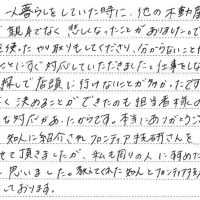 一人暮らしをしていた時に、他の不動産
親身でなく悲しなったことがありました。で
を使ったやり取りをしてくださり、分からないことが
ことにすぐ対応していただきました。仕事をしな
探しで店頭に行けないことが多かったです
く決めることができたのも担当者様の
な対応があったからです。本当にありがとう
知人に紹介されフロンティア技研さんを
せて頂きましたが、私も周りの人に薦めた
思いました。教えてくれた知人とフロンティア技
ております。